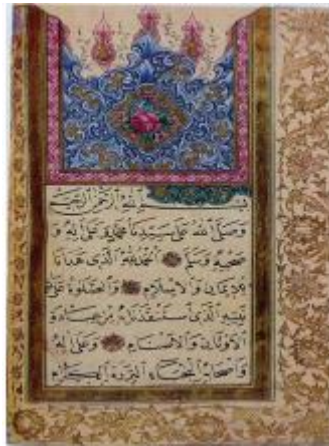 بسم الله الرحمن الرحيم
وصلى الله على سيدنا محمد وعلى اله و
صحبه وسلم الحمد لله الذي هدانا
للايمان والاسلام والصلوة على
نبيه الذي استنقذنا به من عبادة
الاوثان والاصنام وعلى اله
واصحابه النجباء البررة الكرام